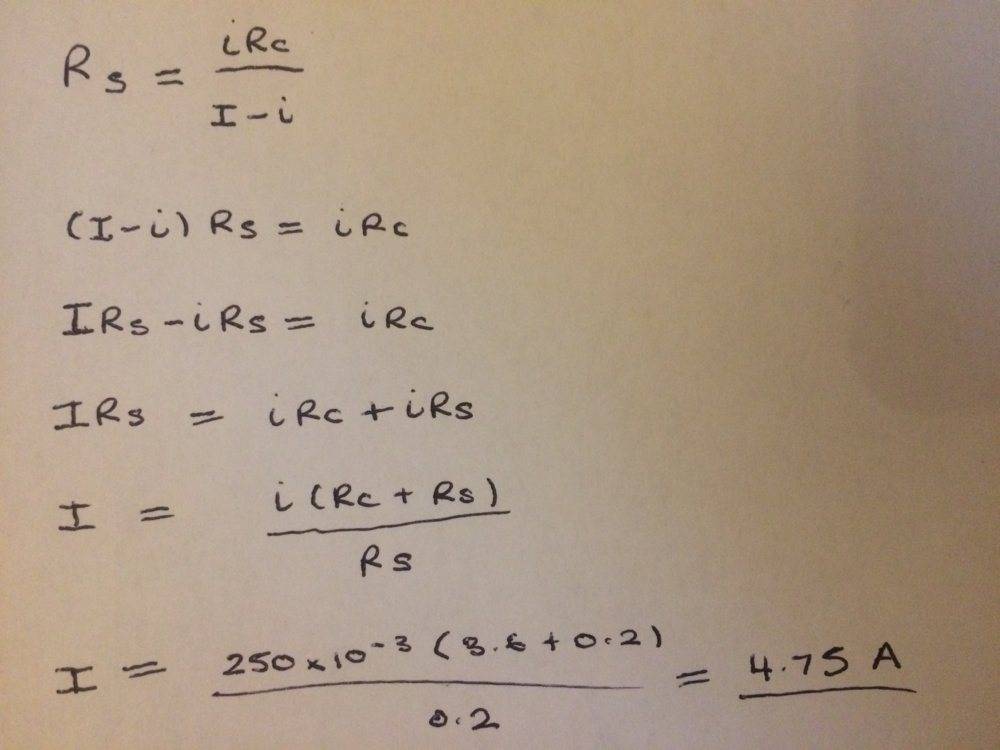 Rs = iRc / I-i
(I-i) Rs = iRc
IRs - iRs = iRc
IRs = iRc + iRs
I = i (Rc + Rs) / Rs
I = 250 x 10⁻³ (3.6 + 0.2) / 0.2 = 4.75 A